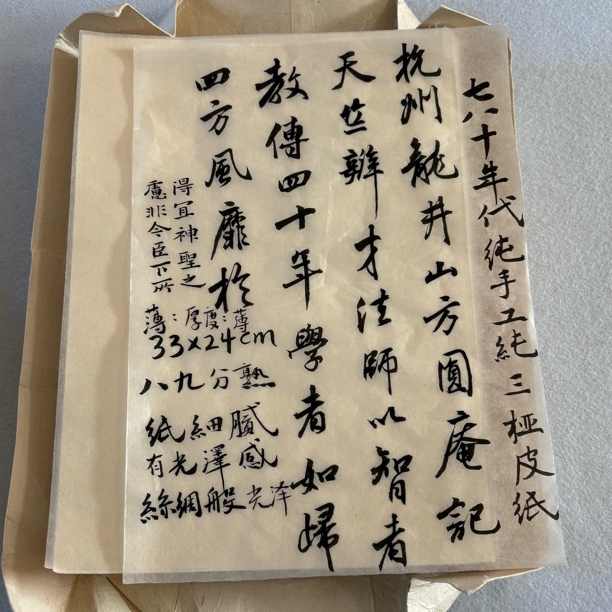 七八十年代純手工純三椏皮紙
杭州龍井山方圓庵記
天竺辯才法師以智者
教傳四十年學者如婦
四方風靡於
得冝神聖之
慮非令臣下所
薄:厚度:薄
33x24cm
八九分熟
紙細膩
有光澤感
絲綢般光澤